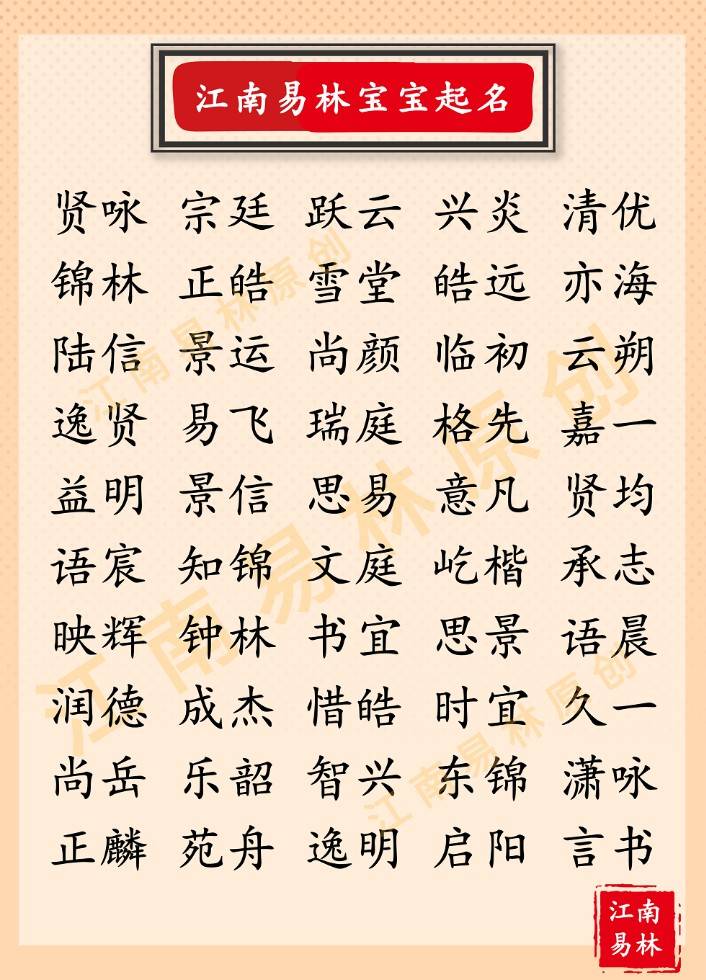 江南易林宝宝起名
贤咏 宗廷 跃云 兴炎 清优
锦林 正皓 雪堂 皓远 亦海
陆信 景运 尚颜 临初 云朔
逸贤 易飞 瑞庭 格先 嘉一
益明 景信 思易 意凡 贤均
语宸 知锦 文庭 屹楷 承志
映辉 钟林 书宜 思景 语晨
润德 成杰 惜皓 时宜 久一
尚岳 乐韶 智兴 东锦 潇咏
正麟 苑舟 逸明 启阳 言书
江南易林原创
江南易林原创
江南易林原创
江南
易林